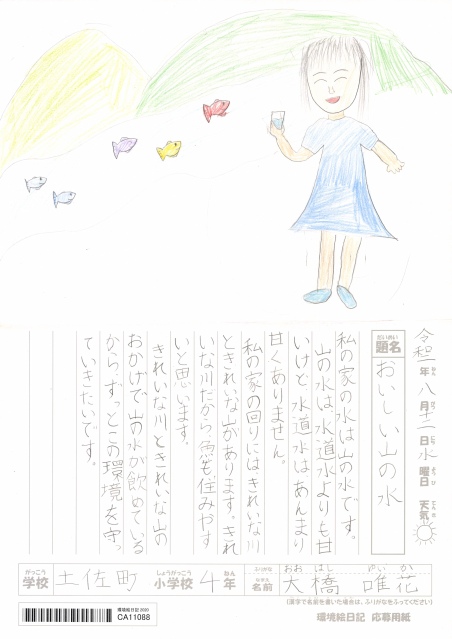 令和二年八月十二日水曜日 天気
ねん がつ にち よう び てんき
だいめい
題名 おいしい山の水
私の家の水は山の水です。
山の水は、水道水よりも甘
いけど、水道水はあんまり
甘くありません。
私の家の回りにはきれいな川
ときれいな山があります。きれ
いな川だから、魚も住みやす
いと思います。
きれいな川ときれいな山の
おかげで山の水が飲めている
から、ずっとこの環境を守っ
ていきたいです。
がっこう しょうがっこう ねん ふりがな おおはし ゆいか
学校 土佐町 小学校 4年 名前 大橋 唯花
(漢字で名前を書いた場合は、ふりがなをふってください)
環境絵日記2020
CA11088
環境絵日記 応募用紙